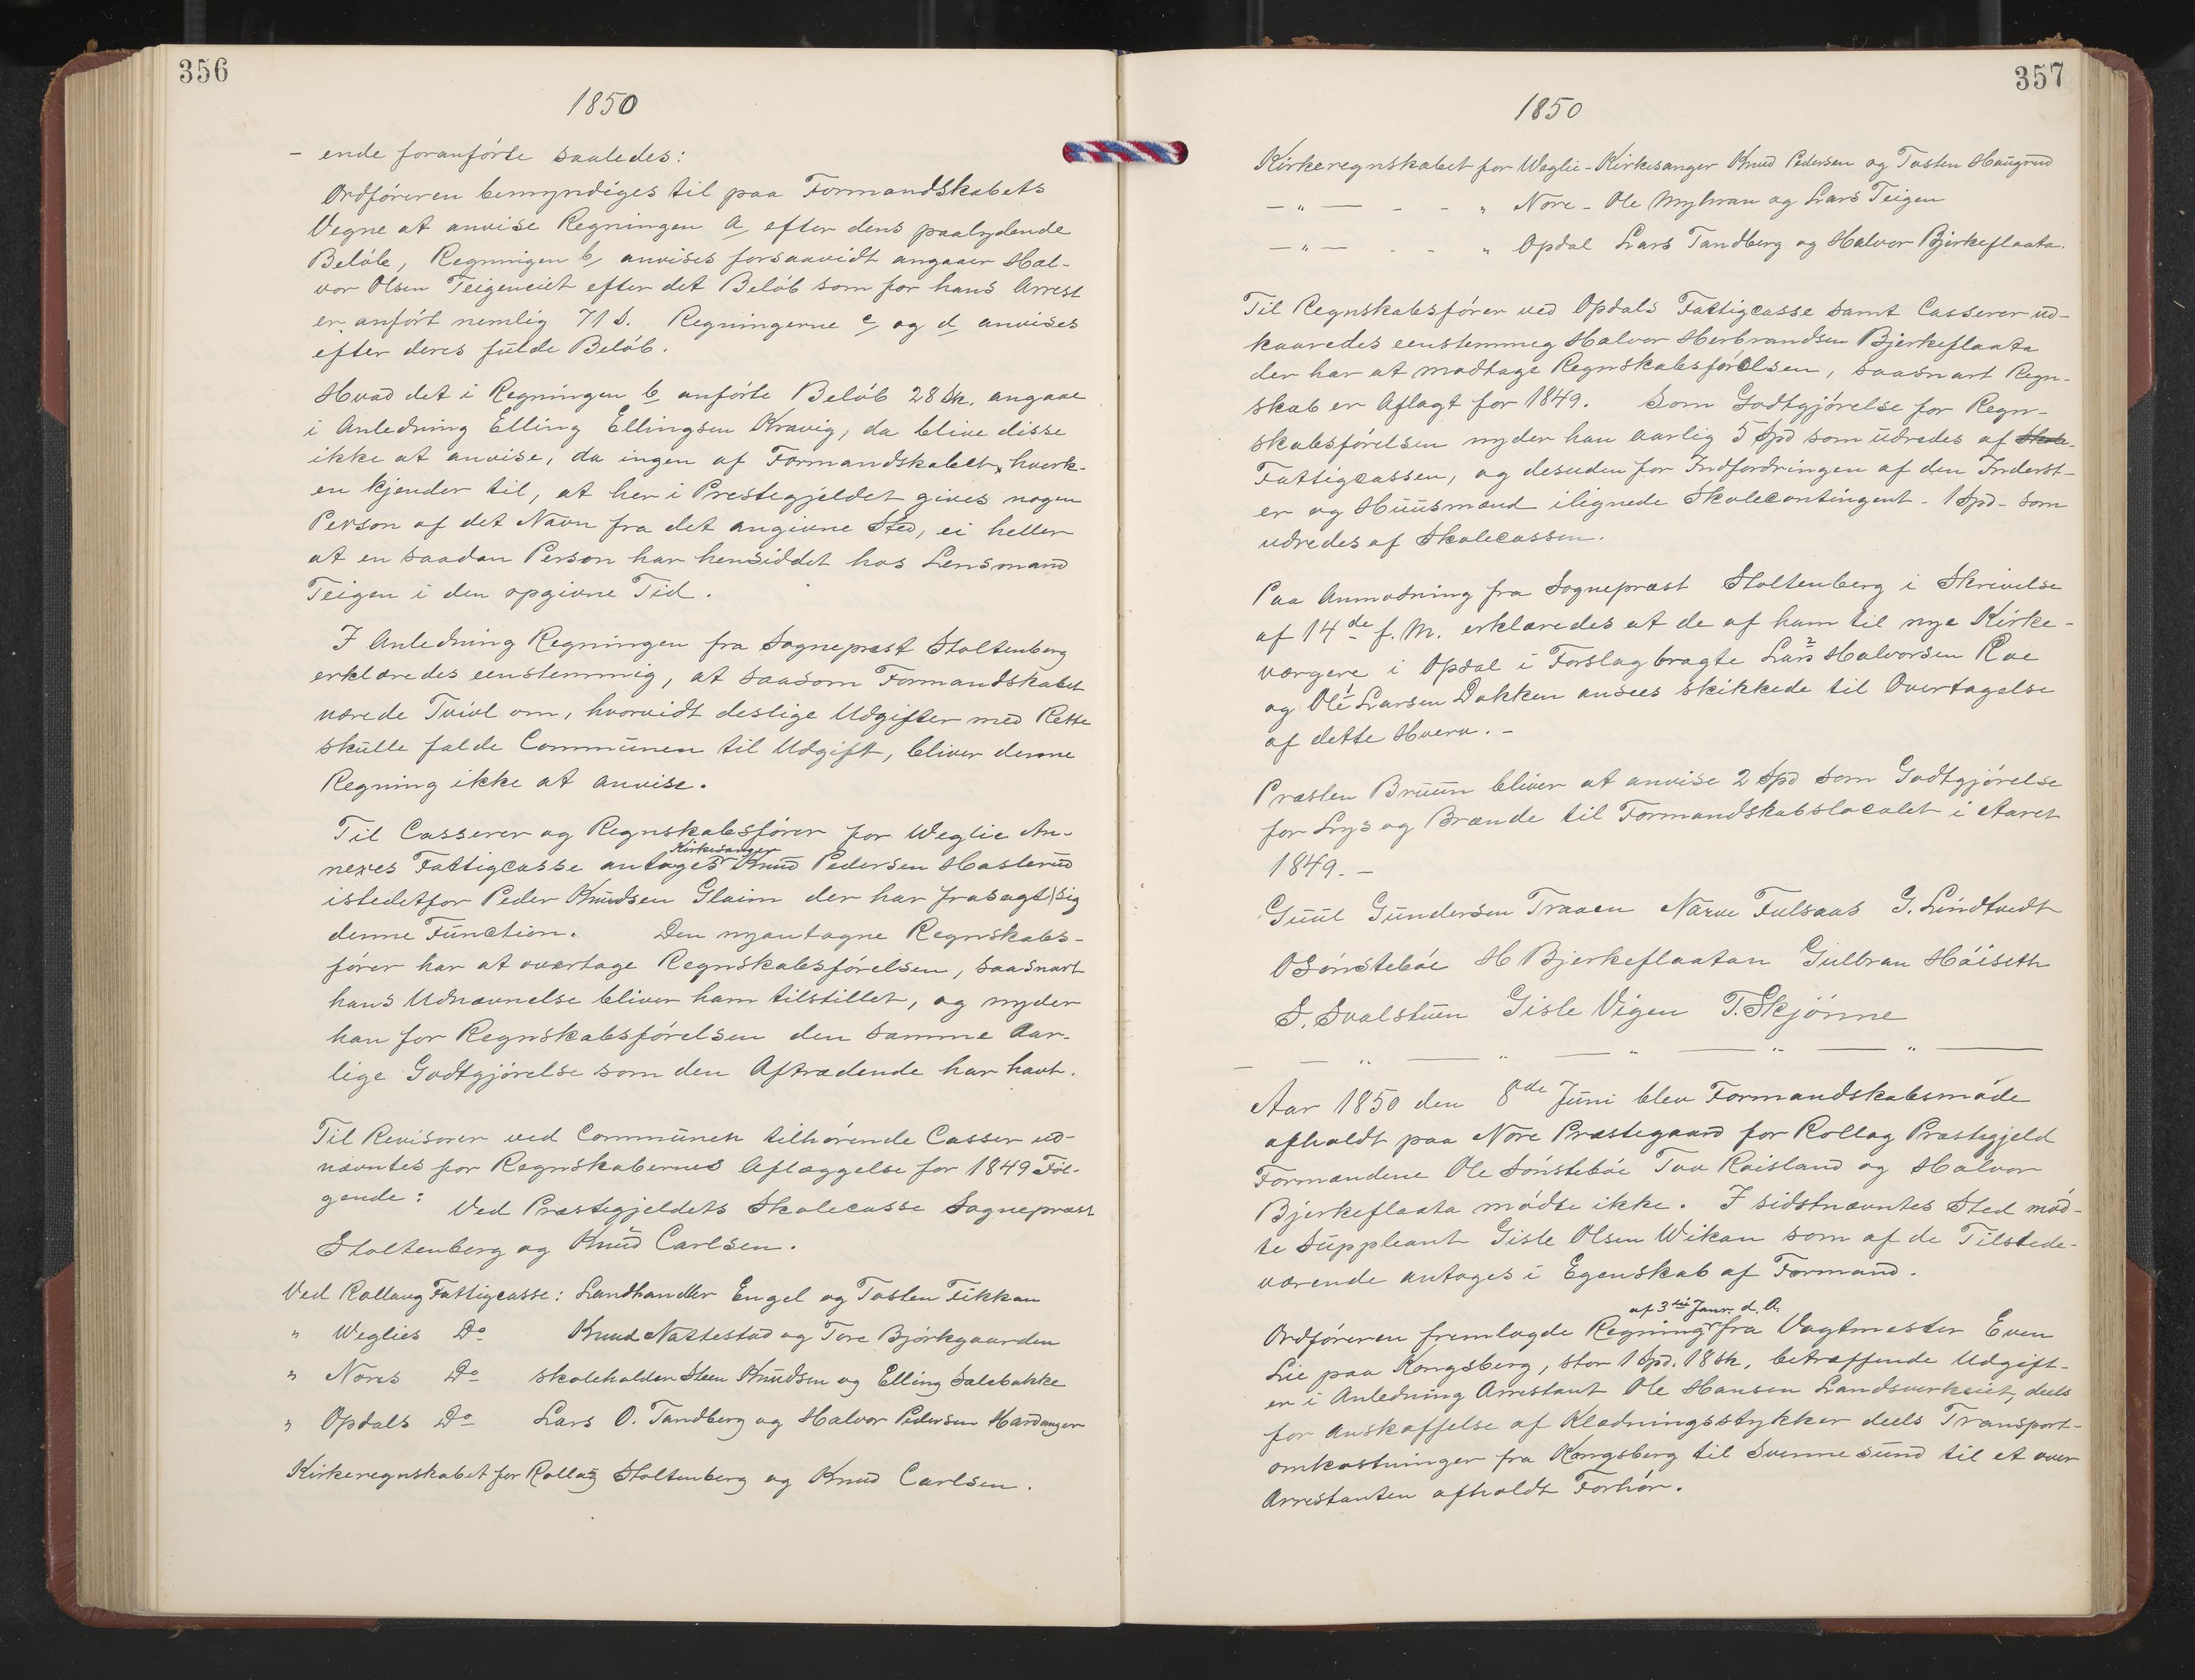 356
1850
- ende foranførte saaledes:
Ordføreren bemyndiges til paa Formandskabets
Vegne at anvise Regningen a, efter dens paalydende
Beløb, Regningen b, anvises forsaavidt angaaer Hal-
vor Olsen Teigeneiet efter det Beløb som for hans Arrest
er anført nemlig 71 s. Regningerne c, og d, anvises
efter deres fulde Beløb.
Hvad det i Regningen b, anførte Beløb 28 Sk. angaae
i Anledning Elling Ellingsen Kravig, da blive disse
ikke at anvise, da ingen af Formandskabet, hverk-
en kjender til, at her i Prestegjeldet gives nogen
Person af det Navn fra det angivne Sted, ei heller
at en saadan Person har hensiddet hos Lensmand
Teigen i den opgivne Tid.
I Anledning Regningen fra Sogneprest Stoltenberg
erklæredes eenstemmig, at saasom Formandskabet
nærede Tvivl om, hvorvidt deslige Udgifter med Rette
skulle falde Communen til Udgift, bliver denne
Regning ikke at anvise.
Til Casserer og Regnskabsfører for Weglie An-
Kirkesanger
nexes Fattigcasse antages Knud Pedersen Haslerud
istedetfor Peder Knudsen Glaim der har frasagt sig
denne Function. Den nyantagne Regnskabs-
fører har at overtage Regnskabsførelsen, saasnart
hans Udnævnelse bliver ham tilstillet, og nyder
han for Regnskabsførelsen den samme Aar-
lige Godtgjørelse som den Aftrædende har havt.
Til Revisorer ved Communen tilhørende Casser ud-
nævntes for Regnskabernes Aflæggelse for 1849 Føl-
gende: Ved Præstegjeldets Skolecasse Sogneprest
Stoltenberg og Knud Carlsen.
Ved Rollaug Fattigcasse: Landhandler Engel og Tosten Fikkan
" Weglies Do Knud Nattestad og Tore Bjørkgaarden
" Nores Do Skoleholder Steen Knudsen og Elling Salebakke
" Opdals Do Lars O. Tandberg og Halvor Pedersen Hardanger
Kirkeregnskabet for Rollag Stoltenberg og Knud Carlsen.
357
1850
Kirkeregnskabet for Weglie - Kirkesanger Knud Pedersen og Tosten Haugrud
- " - - - " Nore - Ole Myhran og Lars Teigen
- " - - - " Opdal Lars Tandberg og Halvor Bjerkeflaata.
Til Regnskabsfører ved Opdals Fattigcasse samt Casserer ud-
kaaredes eenstemmig Halvor Herbrandsen Bjerkeflaata
der har at modtage Regnskabsførelsen, saasnart Regn-
skab er Aflagt for 1849. Som Godtgjørelse for Regn-
skabsførelsen nyder han aarlig 5 Spd som udredes af Skole-
Fattigcassen, og desuden for Indfordringen af den Inderst-
er og Huusmænd ilignede Skolecontingent - 1 Spd - som
udredes af Skolecassen.
Paa Anmodning fra Sognepræst Stoltenberg i Skrivelse
af 14de f. M. erklæredes at de af ham til nye Kirke-
værgere i Opdal i Forslag bragte Lars 2 Halvorsen Roe
og Ole 1 Larsen Dokken ansees skikkede til Overtagelse
af dette Hverv. -
Præsten Bruun bliver at anvise 2 Spd som Godtgjørelse
for Lys og Brænde til Formandskabslocalet i Aaret
1849. -
Guul Gundersen Traaen Narve Fulsaas G. Lindtvedt
O Sønstebøe H Bjerkeflaatan Gulbran Høiseth
S. Svalstuen Gisle Vigen T. Skjønne
- " - " - " - " - " -
Aar 1850 den 8de Juni blev Formandskabsmøde
afholdt paa Nore Præstegaard for Rollag Præstegjeld
Formændene Ole Sønstebøe Tov Roisland og Halvor
Bjerkeflaata mødte ikke. I sidstnævntes Sted mød-
te Suppleant Gisle Olsen Wikan som af de Tilstede-
værende antoges i Egenskab af Formand.
af 3die Janr. d. A.
Ordføreren fremlagde Regning fra Vagtmester Even
Lie paa Kongsberg, stor 1 Spd. 18 sk, betræffende Udgift-
er i Anledning Arrestant Ole Hansen Landsverkeiet, deels
for Anskaffelse af Klædningsstykker deels Transport-
omkostninger fra Kongsberg til Svennesund til et over
Arrestanten afholdt Forhør.